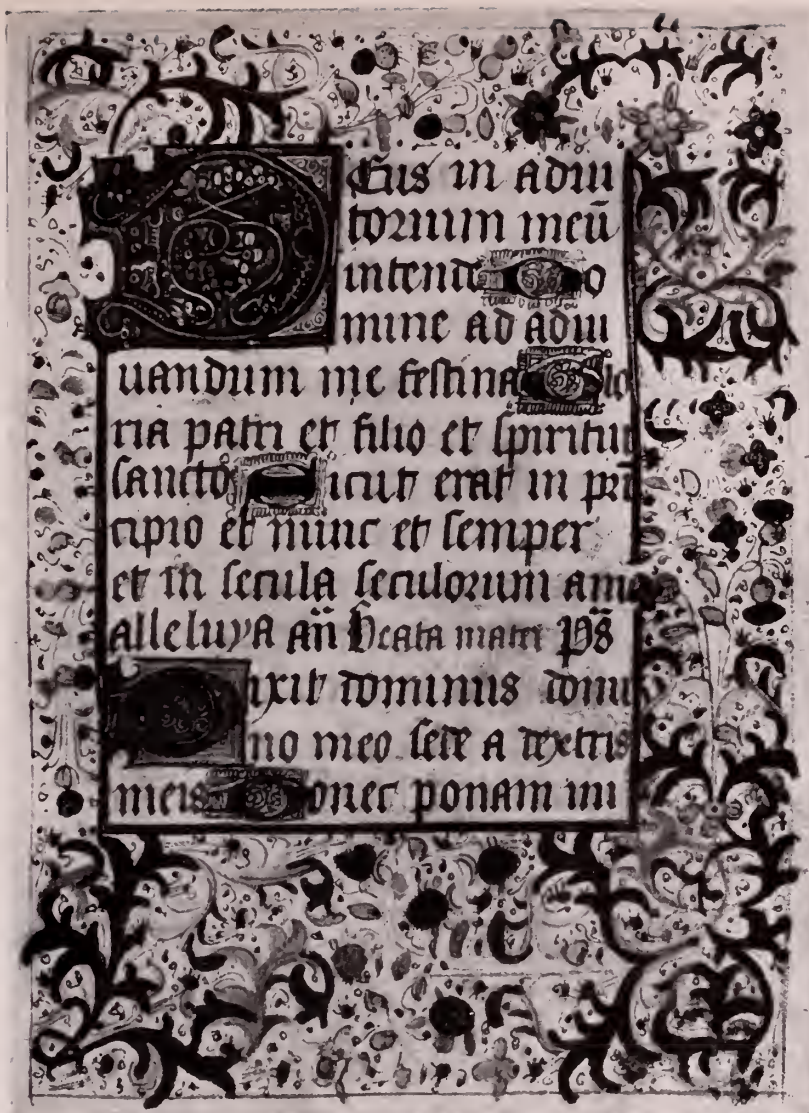 Deus in adiu
torium meū
intende Do
mine ad adiu
uandum me festina Glo
ria patri et filio et spiritui
sancto Sicut erat in prī
cipio et nunc et semper
et in secula seculorum ame
alleluya an̄ Beata mater Ps̄
Dixit dominus domi
no meo sede a dextris
meis Donec ponam ini